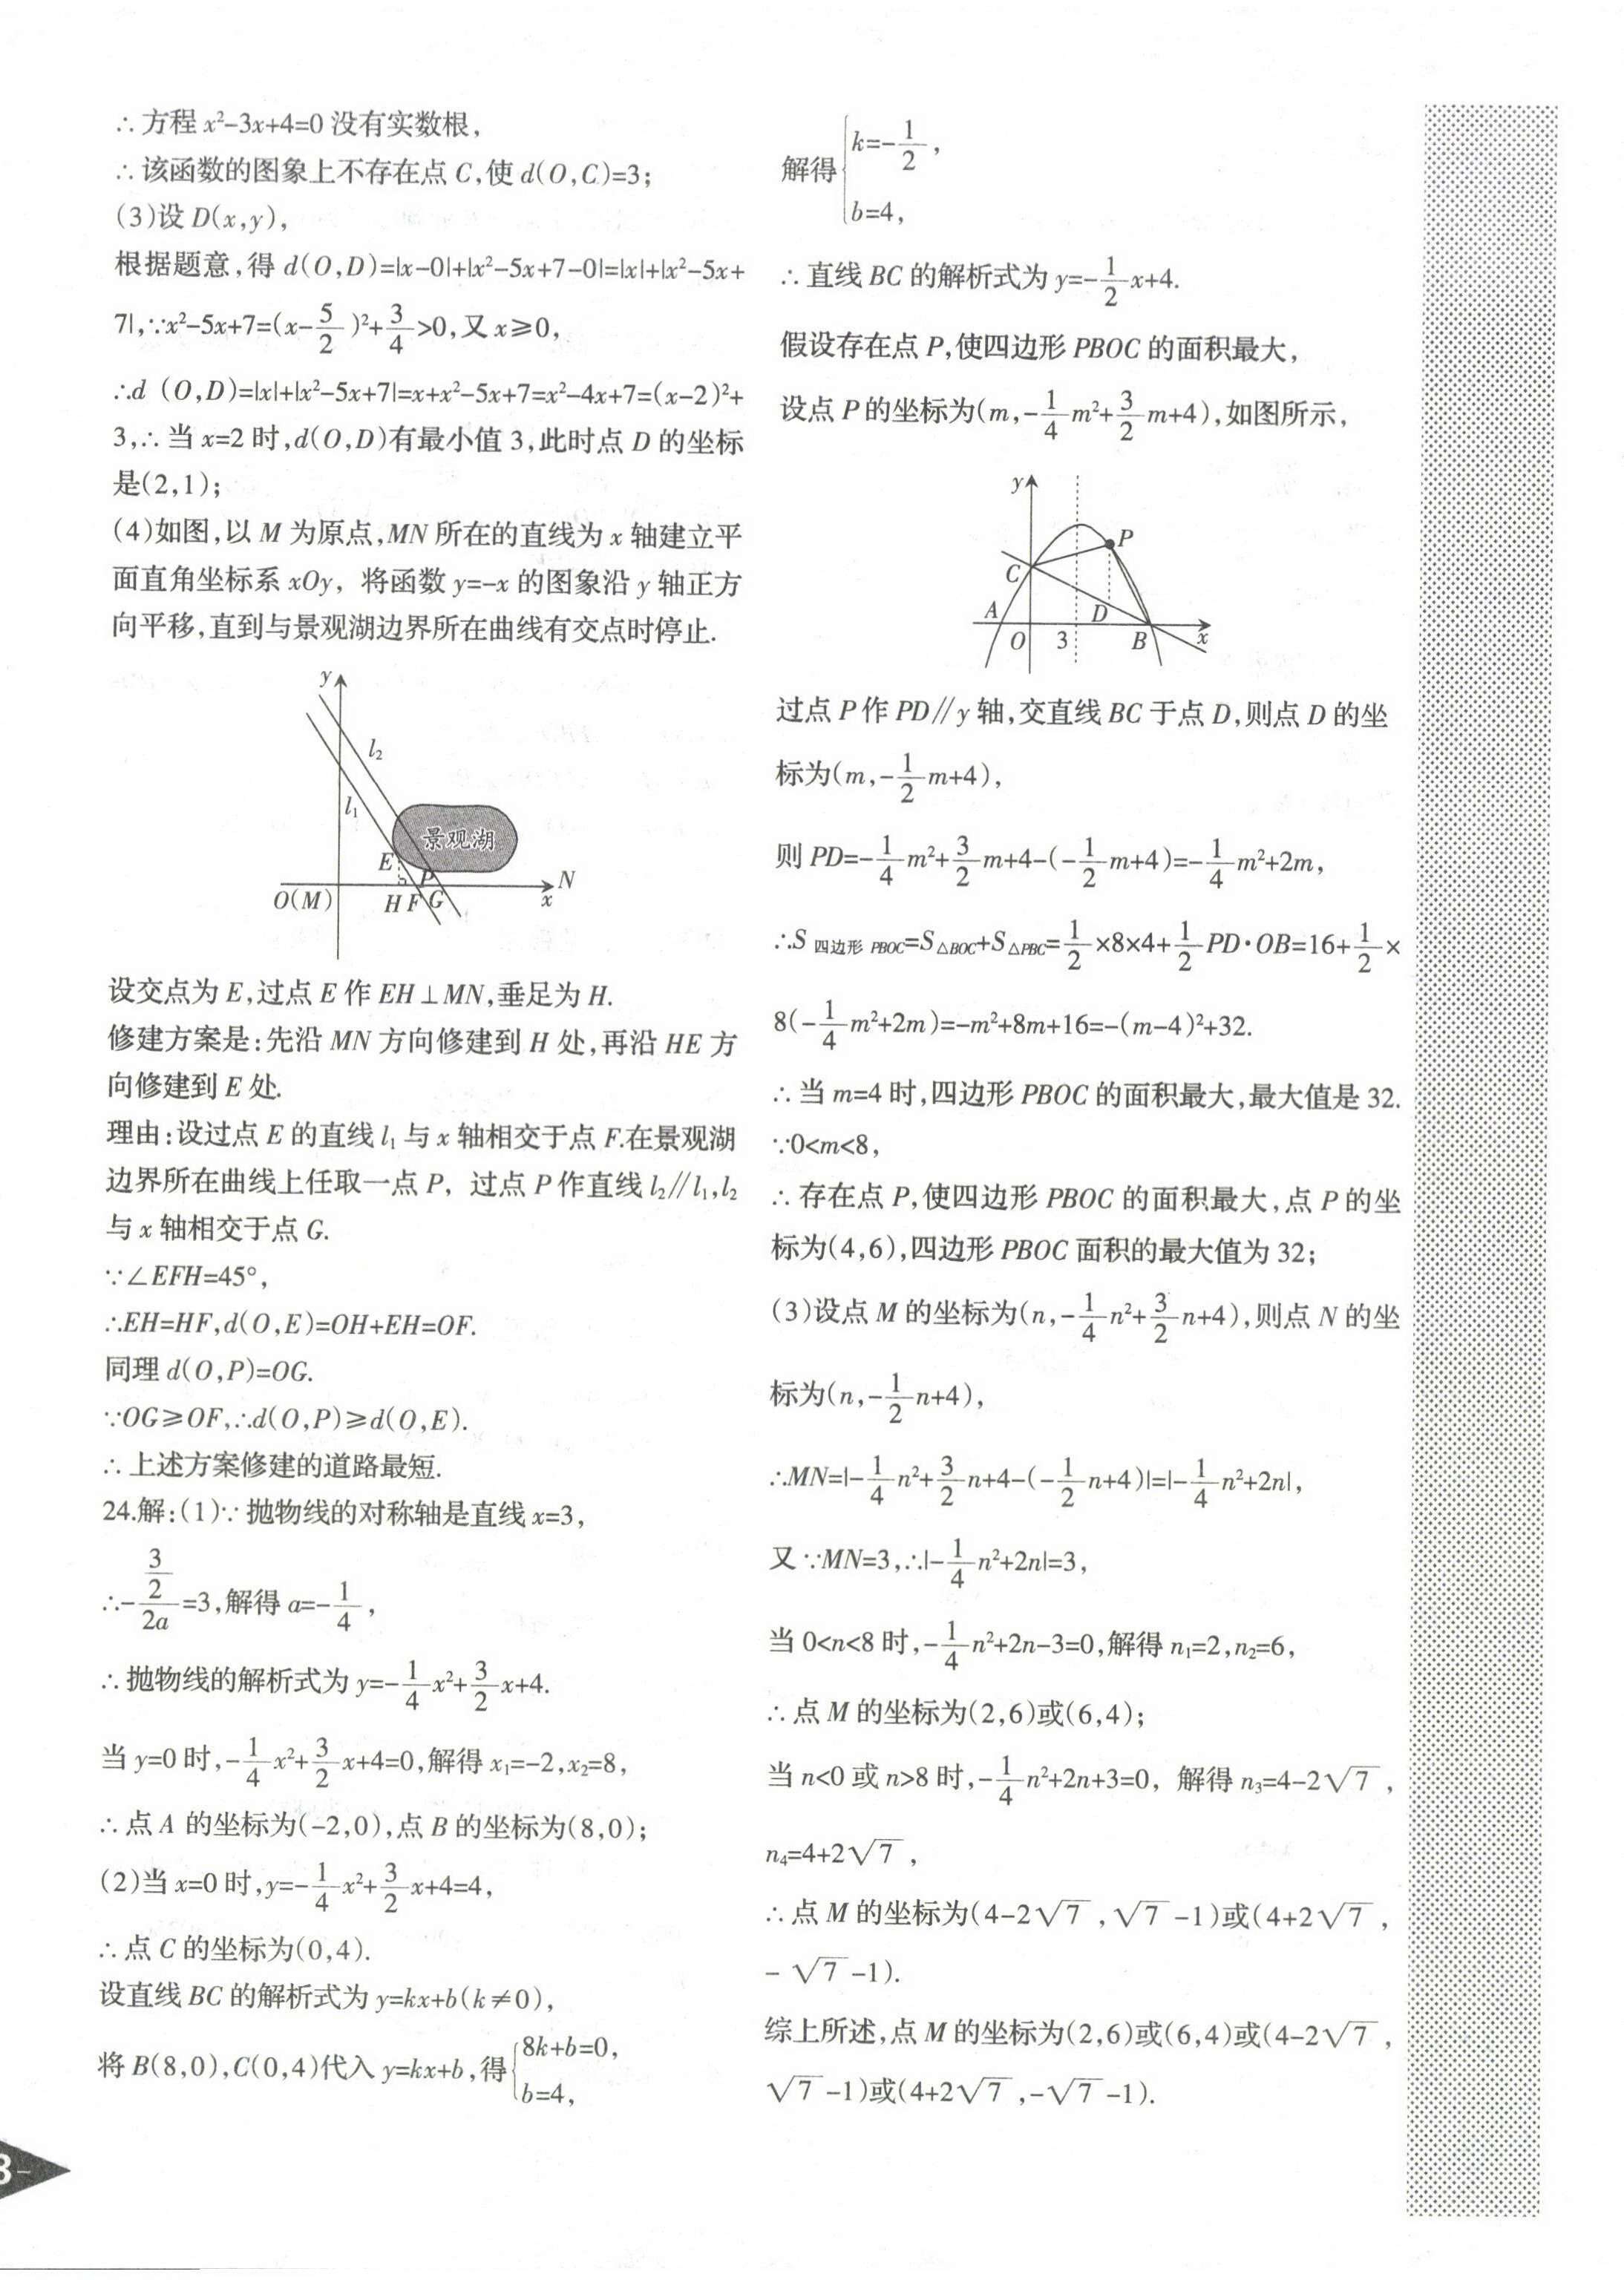 ∴方程 x²-3x+4=0 没有实数根,
∴该函数的图象上不存在点 C,使 d(O,C)=3;
(3)设 D(x,y),
根据题意,得 d(O,D)=|x-0|+|x²-5x+7-0|=|x|+|x²-5x+
7|,∵x²-5x+7=(x-5/2)²+3/4>0,又 x≥0,
∴d (O,D)=|x|+|x²-5x+7|=x+x²-5x+7=x²-4x+7=(x-2)²+
3,∴当 x=2 时,d(O,D)有最小值 3,此时点 D 的坐标
是(2,1);
(4)如图,以 M 为原点,MN 所在的直线为 x 轴建立平
面直角坐标系 xOy, 将函数 y=-x 的图象沿 y 轴正方
向平移,直到与景观湖边界所在曲线有交点时停止.
y
l₂
l₁
景观湖
E
P
N
O(M)
H F G
x
设交点为 E,过点 E 作 EH⊥MN,垂足为 H.
修建方案是:先沿 MN 方向修建到 H 处,再沿 HE 方
向修建到 E 处.
理由:设过点 E 的直线 l₁ 与 x 轴相交于点 F.在景观湖
边界所在曲线上任取一点 P, 过点 P 作直线 l₂∥l₁,l₂
与 x 轴相交于点 G.
∵∠EFH=45°,
∴EH=HF,d(O,E)=OH+EH=OF.
同理 d(O,P)=OG.
∵OG≥OF,∴d(O,P)≥d(O,E).
∴上述方案修建的道路最短.
24.解:(1)∵抛物线的对称轴是直线 x=3,
∴-(3/2)/(2a)=3,解得 a=-1/4,
∴抛物线的解析式为 y=-1/4x²+3/2x+4.
当 y=0 时,-1/4x²+3/2x+4=0,解得 x₁=-2,x₂=8,
∴点 A 的坐标为(-2,0),点 B 的坐标为(8,0);
(2)当 x=0 时,y=-1/4x²+3/2x+4=4,
∴点 C 的坐标为(0,4).
设直线 BC 的解析式为 y=kx+b(k≠0),
将 B(8,0),C(0,4)代入 y=kx+b,得{8k+b=0,
b=4,
3-
解得{k=-1/2,
b=4,
∴直线 BC 的解析式为 y=-1/2x+4.
假设存在点 P,使四边形 PBOC 的面积最大,
设点 P 的坐标为(m,-1/4m²+3/2m+4),如图所示,
y
P
C
A
D
O
3
B
x
过点 P 作 PD∥y 轴,交直线 BC 于点 D,则点 D 的坐
标为(m,-1/2m+4),
则 PD=-1/4m²+3/2m+4-(-1/2m+4)=-1/4m²+2m,
∴S四边形PBOC=S△BOC+S△PBC=1/2×8×4+1/2PD·OB=16+1/2×
8(-1/4m²+2m)=-m²+8m+16=-(m-4)²+32.
∴当 m=4 时,四边形 PBOC 的面积最大,最大值是 32.
∵0<m<8,
∴存在点 P,使四边形 PBOC 的面积最大,点 P 的坐
标为(4,6),四边形 PBOC 面积的最大值为 32;
(3)设点 M 的坐标为(n,-1/4n²+3/2n+4),则点 N 的坐
标为(n,-1/2n+4),
∴MN=|-1/4n²+3/2n+4-(-1/2n+4)|=|-1/4n²+2n|,
又∵MN=3,∴|-1/4n²+2n|=3,
当 0<n<8 时,-1/4n²+2n-3=0,解得 n₁=2,n₂=6,
∴点 M 的坐标为(2,6)或(6,4);
当 n<0 或 n>8 时,-1/4n²+2n+3=0, 解得 n₃=4-2√7,
n₄=4+2√7,
∴点 M 的坐标为(4-2√7,√7-1)或(4+2√7,
-√7-1).
综上所述,点 M 的坐标为(2,6)或(6,4)或(4-2√7,
√7-1)或(4+2√7,-√7-1).